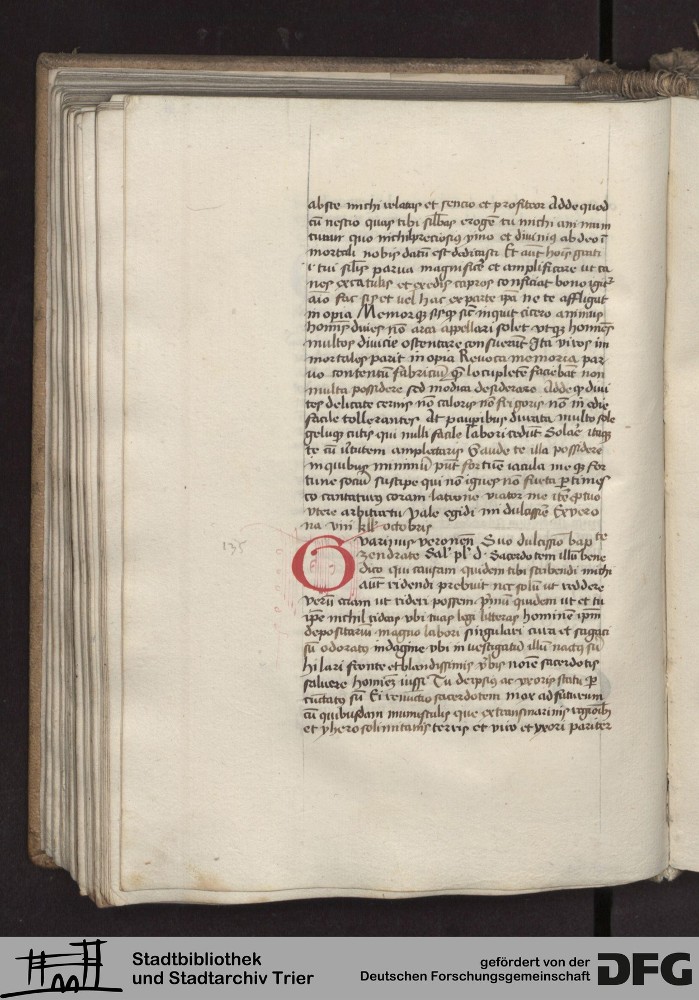 abste michi relatas et sencio et profiteor Adde quod
cū nescio quas tibi silbas erogē tu michi animum
tuum quo nichil preciosius ymo et divinius ab deo ī
mortali nobis datū est dedicasti Et aūt hoīs grati
tui silīs parva magnificē et amplificare ut ca
nes ex catulis et ex edis capros conficiat bono igit
aio fac sis et vel hac ex parte ipā ne te affligat
inopia Memorqȝ sis qȝ sic inquit cicero animus
hominis dives nō arca appellari solet utqȝ homines
multos divicie ostentare consueverūt Ita viros im
mortales parit inopia Revoca memoria par
vo contentū fabriciū qȝ locupletē faciebat non
multa possidere sed modica desiderare Adde qȝ divi
tes delicate cernis nō caloris nō frigoris nō inedie
facile tollerantes At pauperibus durata multo sole
geluqȝ cutis qui nulli facile labori cedūt Solare itaqȝ
te cū virtutem amplectaris Gaude te illa possidere
in quibus nī nimiū pūt fortūe iacula me qȝ for
tune sociū suscipe qui nō ignes nō freta pertimes
co cantaturus coram latrone viator me itē qȝ tuo
utere arbitratu Vale egidi mi dulcissīe Ex vero
na viii kll' octobris
Gvarinus veronen̄ Suo dulcissīo bapte
zendrate Sal' pl' d Sacerdotem illū bene
dico qui causam quidem tibi scribendi michi
aūt ridendi prebuit nec solū ut reddere
verū eciam ut rideri possem pīmū quidem ut et tu
ipē nichil rideas ubi tuas legi litteras hominē ipm
depositariū magno labori singulari cura et sagaci
sū odoratus indagine ubi investigatū illū nactus sū
hilari fronte et blandissimis vbis noīe sacerdotis
salvere hominē iussi Tu de ipsius ac uxoris statu per
cūctatus sū Ei renuncio sacerdotem mox adfuturum
cū quibusdam munusculis que ex transmarinis regioībus
et yherosolimitanis terris et viro et uxori pariter
135
Stadtbibliothek
und Stadtarchiv Trier
gefördert von der
Deutschen Forschungsgemeinschaft
DFG